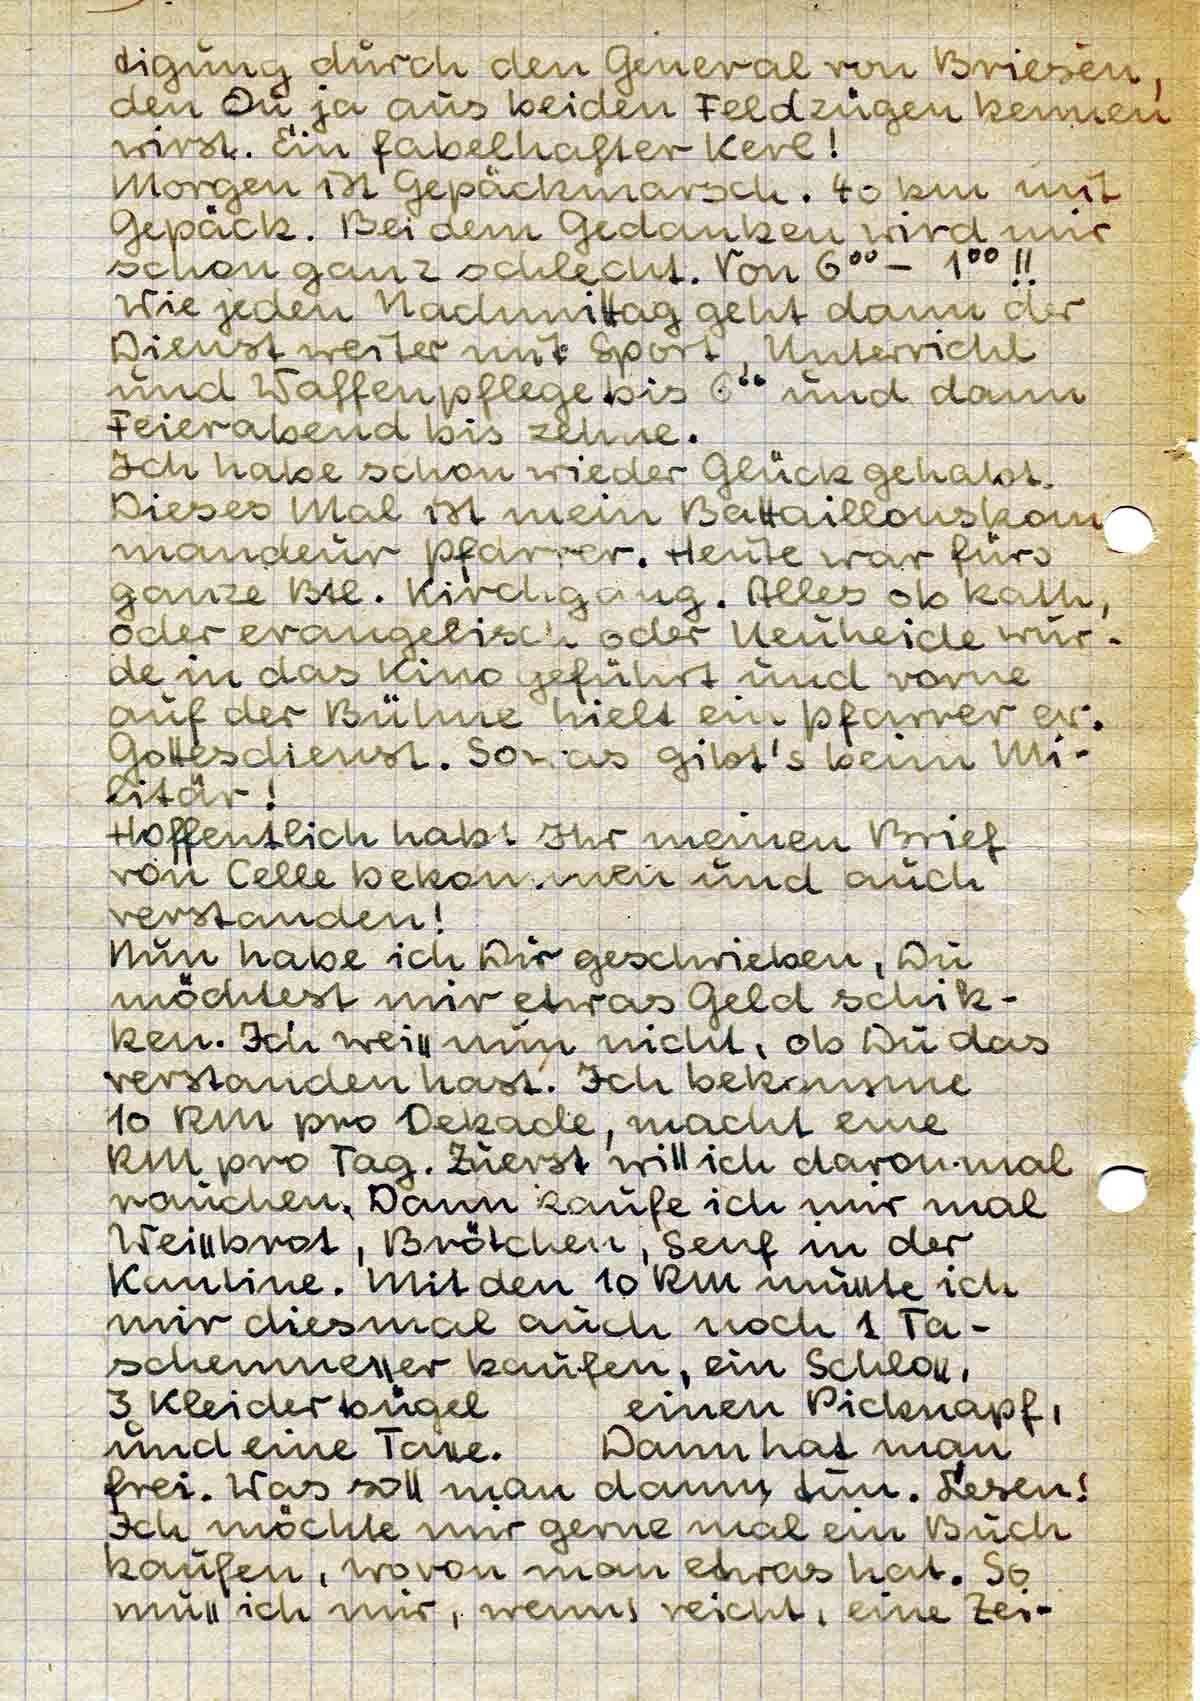 tigung durch den General von Briesen,
den Du ja aus beiden Feldzügen kennen
wirst. Ein fabelhafter Kerl!
Morgen ist Gepäckmarsch. 40 km mit
Gepäck. Bei dem Gedanken wird mir
schon ganz schlecht. Von 6⁰⁰ – 1⁰⁰!!
Wie jeden Nachmittag geht dann der
Dienst weiter mit Sport, Unterricht
und Waffenpflege bis 6⁰⁰ und dann
Feierabend bis zehne.
Ich habe schon wieder Glück gehabt.
Dieses Mal ist mein Battaillonskom
mandeur Pfarrer. Heute war fürs
ganze Btl. Kirchgang. Alles ob kath,
oder evangelisch oder Neuheide wur-
de in das Kino geführt und vorne
auf der Bühne hielt ein Pfarrer ev.
Gottesdienst. Sowas gibt's beim Mi-
litär!
Hoffentlich habt Ihr meinen Brief
von Celle bekommen und auch
verstanden!
Nun habe ich Dir geschrieben, Du
möchtest mir etwas Geld schik-
ken. Ich weiß nun nicht, ob Du das
verstanden hast. Ich bekomme
10 RM pro Dekade, macht eine
RM pro Tag. Zuerst will ich davon mal
rauchen. Dann kaufe ich mir mal
Weißbrot, Brötchen, Senf in der
Kantine. Mit den 10 RM mußte ich
mir diesmal auch noch 1 Ta-
schenmeßer kaufen, ein Schloß,
3 Kleiderbügel einen Picknapf,
und eine Taße. Dann hat man
frei. Was soll man dann tun. Lesen!
Ich möchte mir gerne mal ein Buch
kaufen, wovon man etwas hat. So
muß ich mir, wenns reicht, eine Zei-